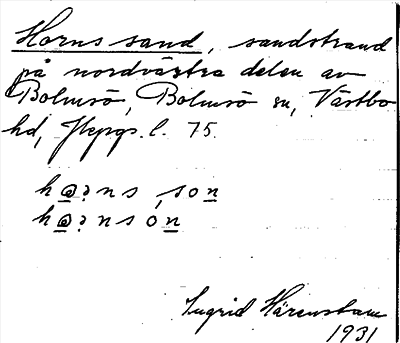 Horns sand, sandstrand
på nordvästra delen av
Bolmsö, Bolmsö sn, Västbo
hd, Jkpgs. l. 75.
Ingrid Härenstam
1931